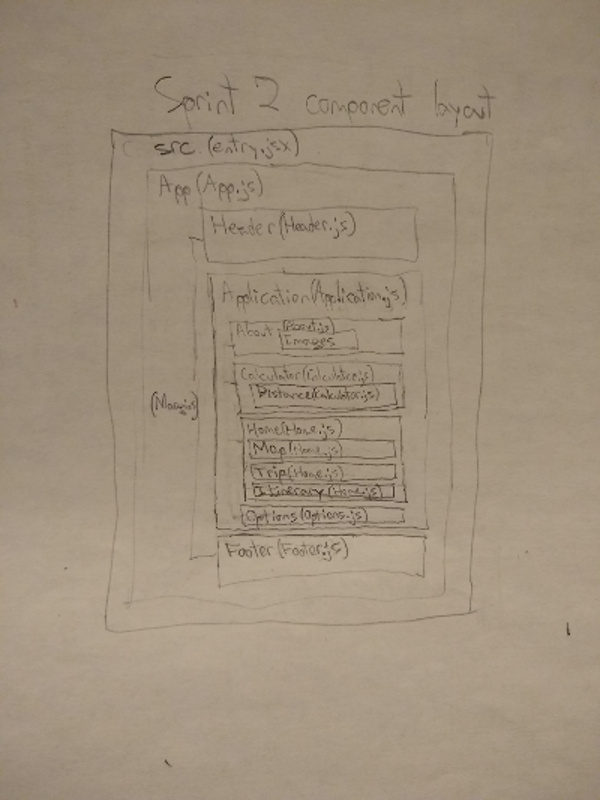 Sprint 2 component layout
src (entry.jsx)
App (App.js)
Header (Header.js)
Application (Application.js)
About (About.js)
Images
Calculator (Calculator.js)
Distance (Calculator.js)
(Margins)
Home (Home.js)
Map (Home.js)
Trip (Home.js)
Itinerary (Home.js)
Options (Options.js)
Footer (Footer.js)